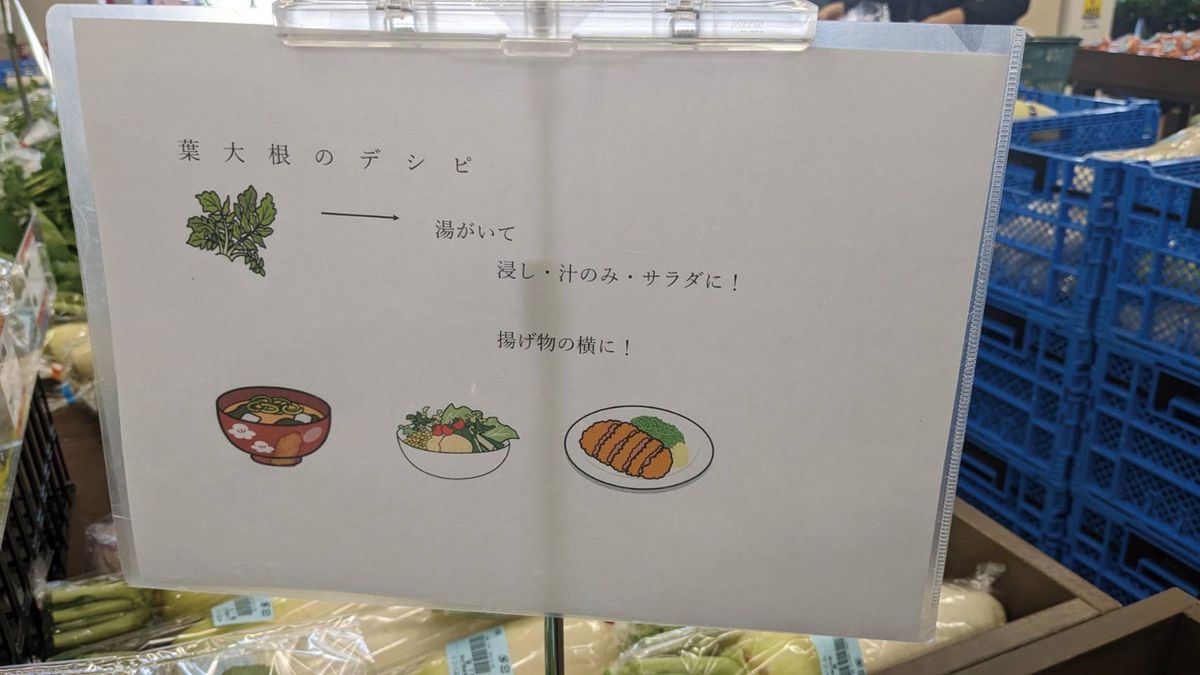 葉大根のデシピ
湯がいて
浸し・汁のみ・サラダに!
揚げ物の横に!